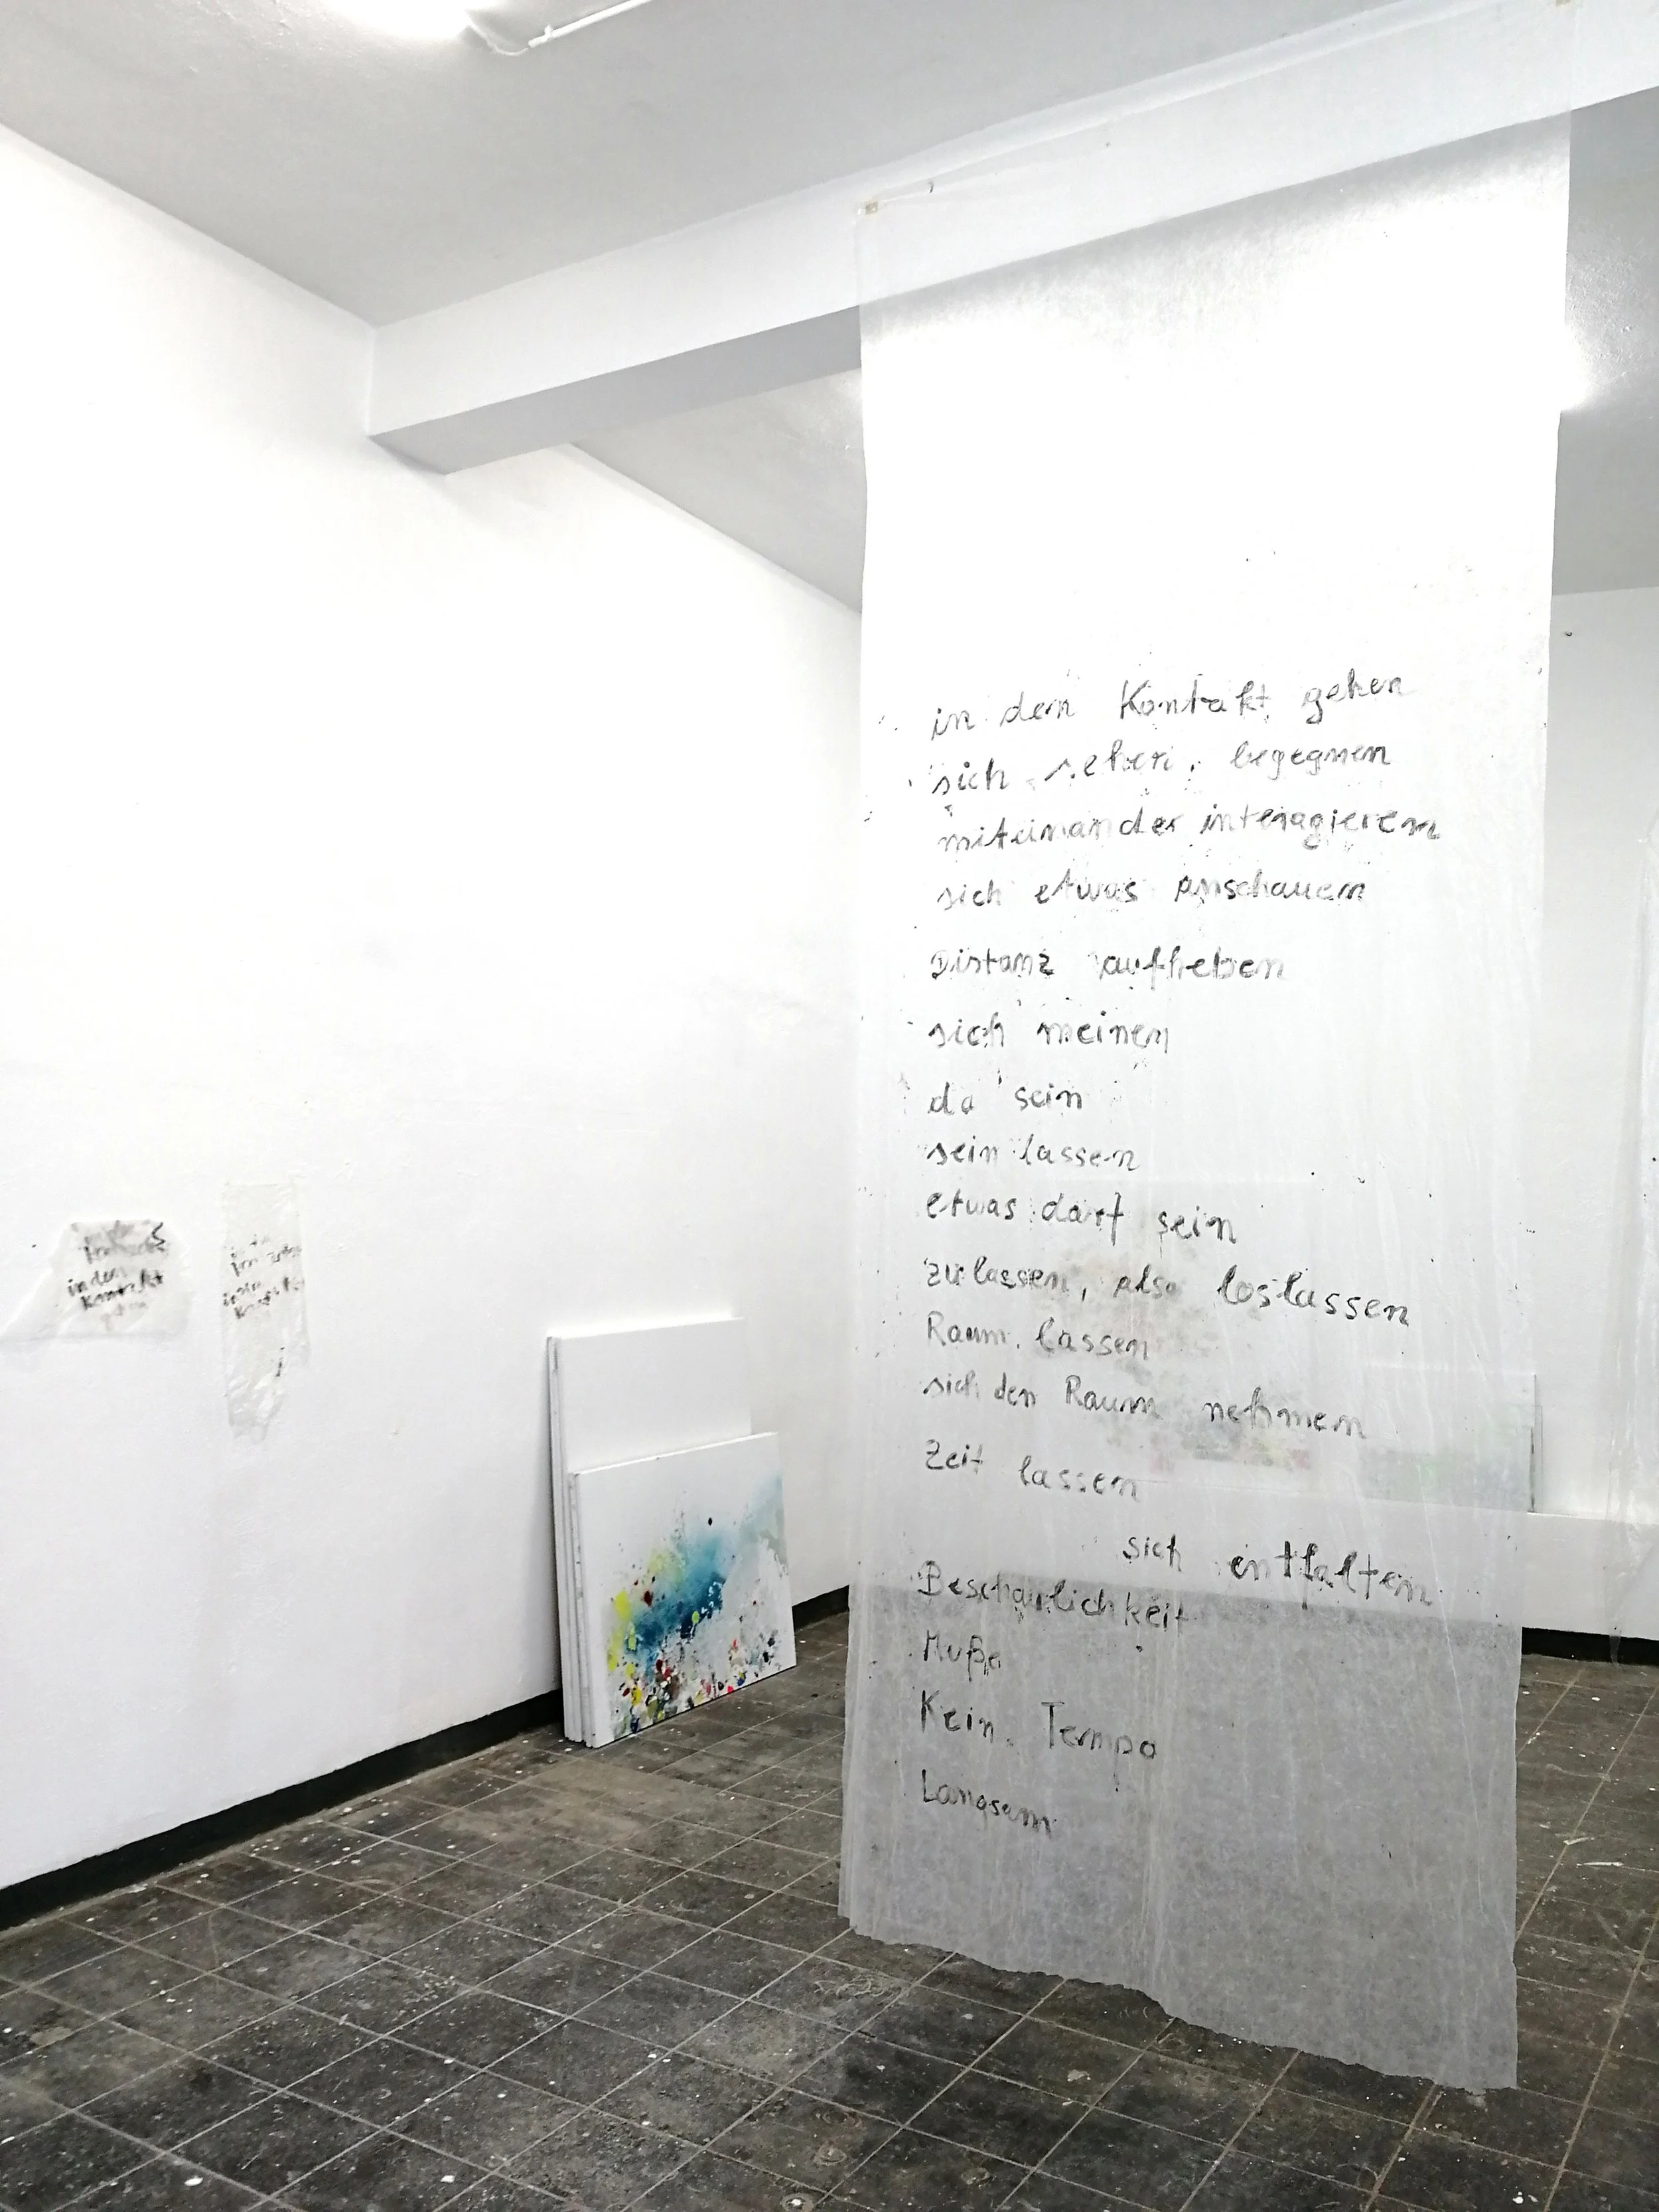 in den Kontakt gehen
sich sehen, begegnen
miteinander interagieren
sich etwas anschauen
Distanz aufheben
sich meinen
da sein
sein lassen
etwas darf sein
zulassen, also loslassen
Raum lassen
sich den Raum nehmen
Zeit lassen
sich entfalten
Beschaulichkeit
Muße
Kein Tempo
Langsam
in den
Kontakt